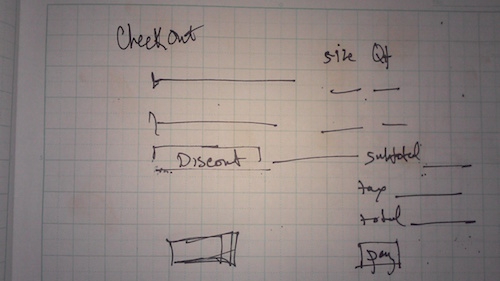 Checkout
size Qt
Discount
subtotal
tax
total
pay